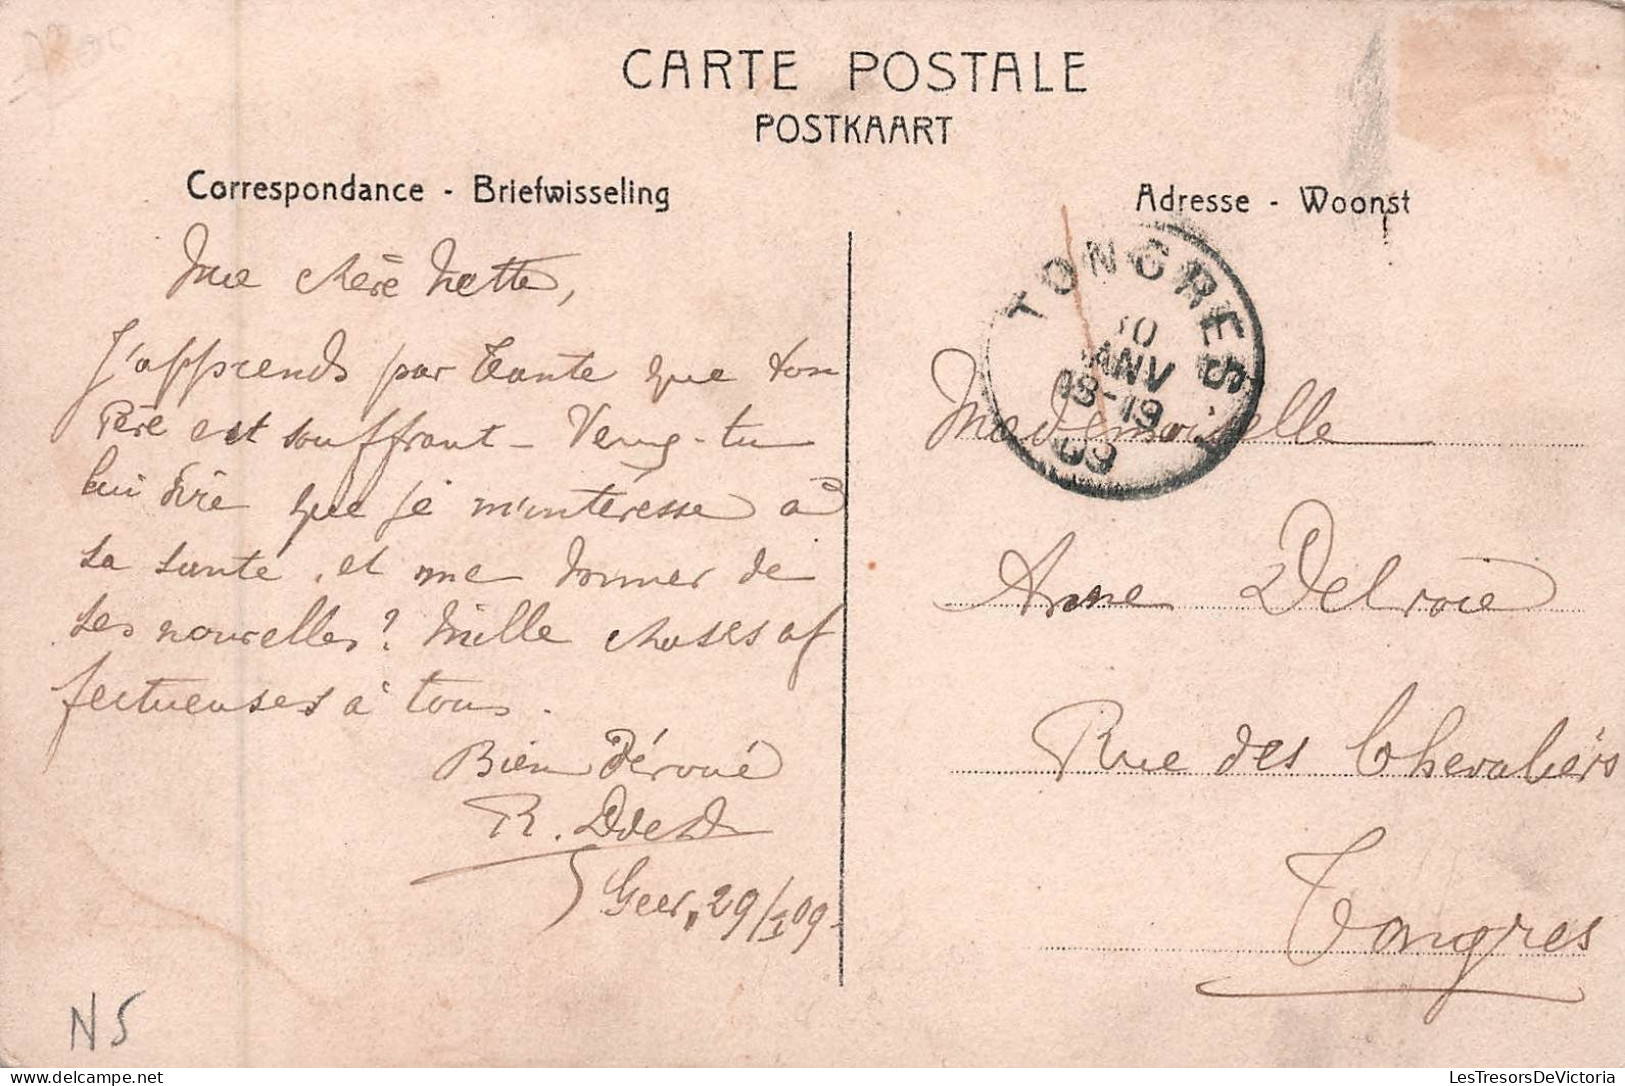 CARTE POSTALE
POSTKAART
Correspondance - Briefwisseling
Adresse - Woonst
Ma chère Netta,
J'apprends par Tante que ton
Père est souffrant - Veux-tu
lui dire que je m'intéresse à
sa santé, et me donner de
ses nouvelles? Mille choses af
fectueuses à tous.
Bien Dévoué
R.
Geer, 29/1 09.
TONGRES
ANV
18-19
09
Mademoiselle
Anne Delvoie
Rue des Chevaliers
Tongres
NS
LesTresorsDeVictoria